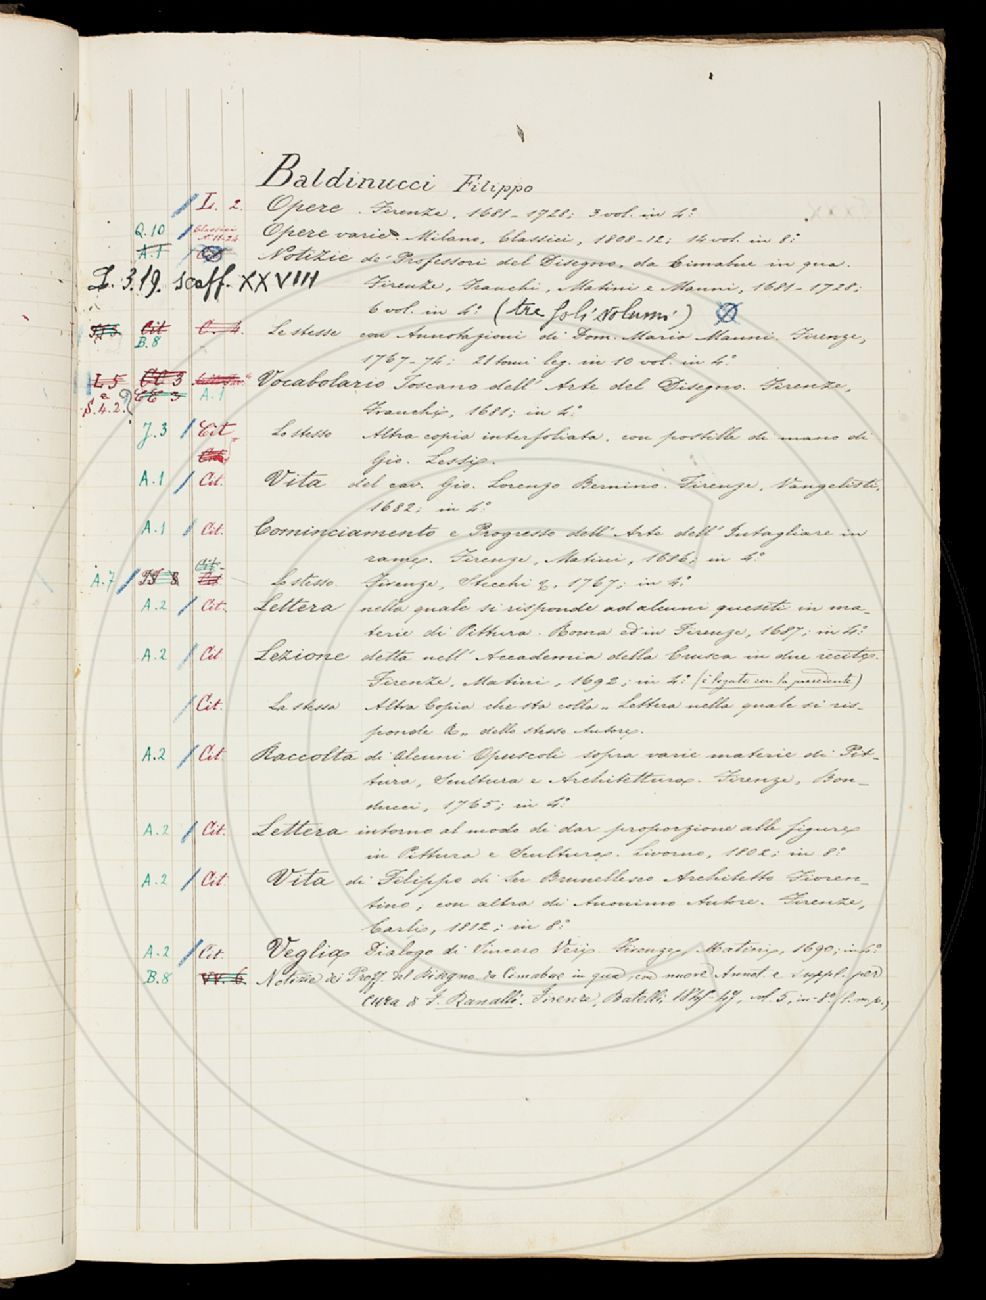 Baldinucci Filippo
L. 2. Opere. Firenze, 1681-1728; 3 vol. in 4º
Q.10 Classici Opere varie. Milano, Classici, 1808-12; 14 vol. in 8º
A.1 Notizie de' Professori del Disegno, da Cimabue in qua.
L. 3.19. scaff. XXVIII Firenze, Franchi, Matini e Manni, 1681-1728;
6 vol. in 4º (tre soli volumi)
Cit C. 4. Le stesse con Annotazioni di Dom. Maria Manni. Firenze,
B.8
1767-74; 21 tomi leg. in 10 vol. in 4º
L 5 Cit 3 Vocabolario Toscano dell'Arte del Disegno. Firenze,
S. 4.2. A.1
Franchi, 1681; in 4º
J. 3 Cit. Lo stesso Altra copia interfoliata, con postille di mano di
Cit. Gio. Lessi.
A.1 Cit. Vita del cav. Gio. Lorenzo Bernino. Firenze, Vangelisti,
1682; in 4º
A.1 Cit. Cominciamento e Progresso dell'Arte dell'Intagliare in
rame. Firenze, Matini, 1686; in 4º
Cit.
A.7 Lo stesso Firenze, Stecchi &, 1767; in 4º
A.2 Cit. Lettera nella quale si risponde ad alcuni quesiti in ma-
terie di Pittura. Roma ed in Firenze, 1687; in 4º
A.2 Cit Lezione detta nell'Accademia della Crusca in due recite.
Firenze, Matini, 1692; in 4º (è legato con la precedente)
Cit. La stessa Altra Copia che sta colla „Lettera nella quale si ris-
ponde &„ dello stesso Autore.
A.2 Cit. Raccolta di Alcuni Opuscoli sopra varie materie di Pit-
tura, Scultura e Architettura. Firenze, Bon-
ducci, 1765; in 4º
A.2 Cit. Lettera intorno al modo di dar proporzione alle figure
in Pittura e Scultura. Livorno, 1802; in 8º
A.2 Cit. Vita di Filippo di Ser Brunellesco Architetto Fioren-
tino; con altra di Anonimo Autore. Firenze,
Carli, 1812; in 8º
A.2 Cit. Veglia Dialogo di Sincero Veri. Firenze, Matini, 1690; in 4º
B.8 VV. 6. Notizie dei Proff. del Disegno da Cimabue in qua con nuove Annot. e suppl. per
cura di F. Ranalli. Firenze, Batelli, 1845-47, vol. 5, in 8º